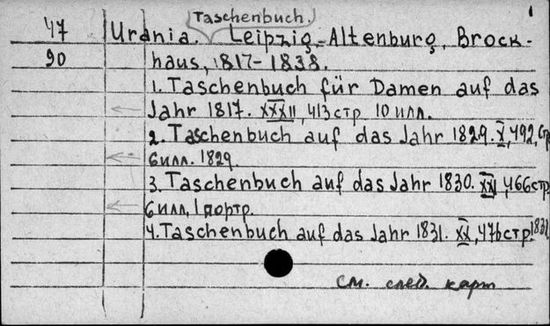 1
Taschenbuch.
47 Urania. Leipzig-Altenburg, Brock-
90 haus, 1817-1838.
1. Taschenbuch für Damen auf das
Jahr 1817. XXXII, 413 стр. 10 илл.
2. Taschenbuch auf das Jahr 1829. X, 492, стр.
6 илл. 1829.
3. Taschenbuch auf das Jahr 1830. XXI, 466 стр.
6 илл, 1 портр.
4. Taschenbuch auf das Jahr 1831. XX, 476 стр. 1831
см. след. карт